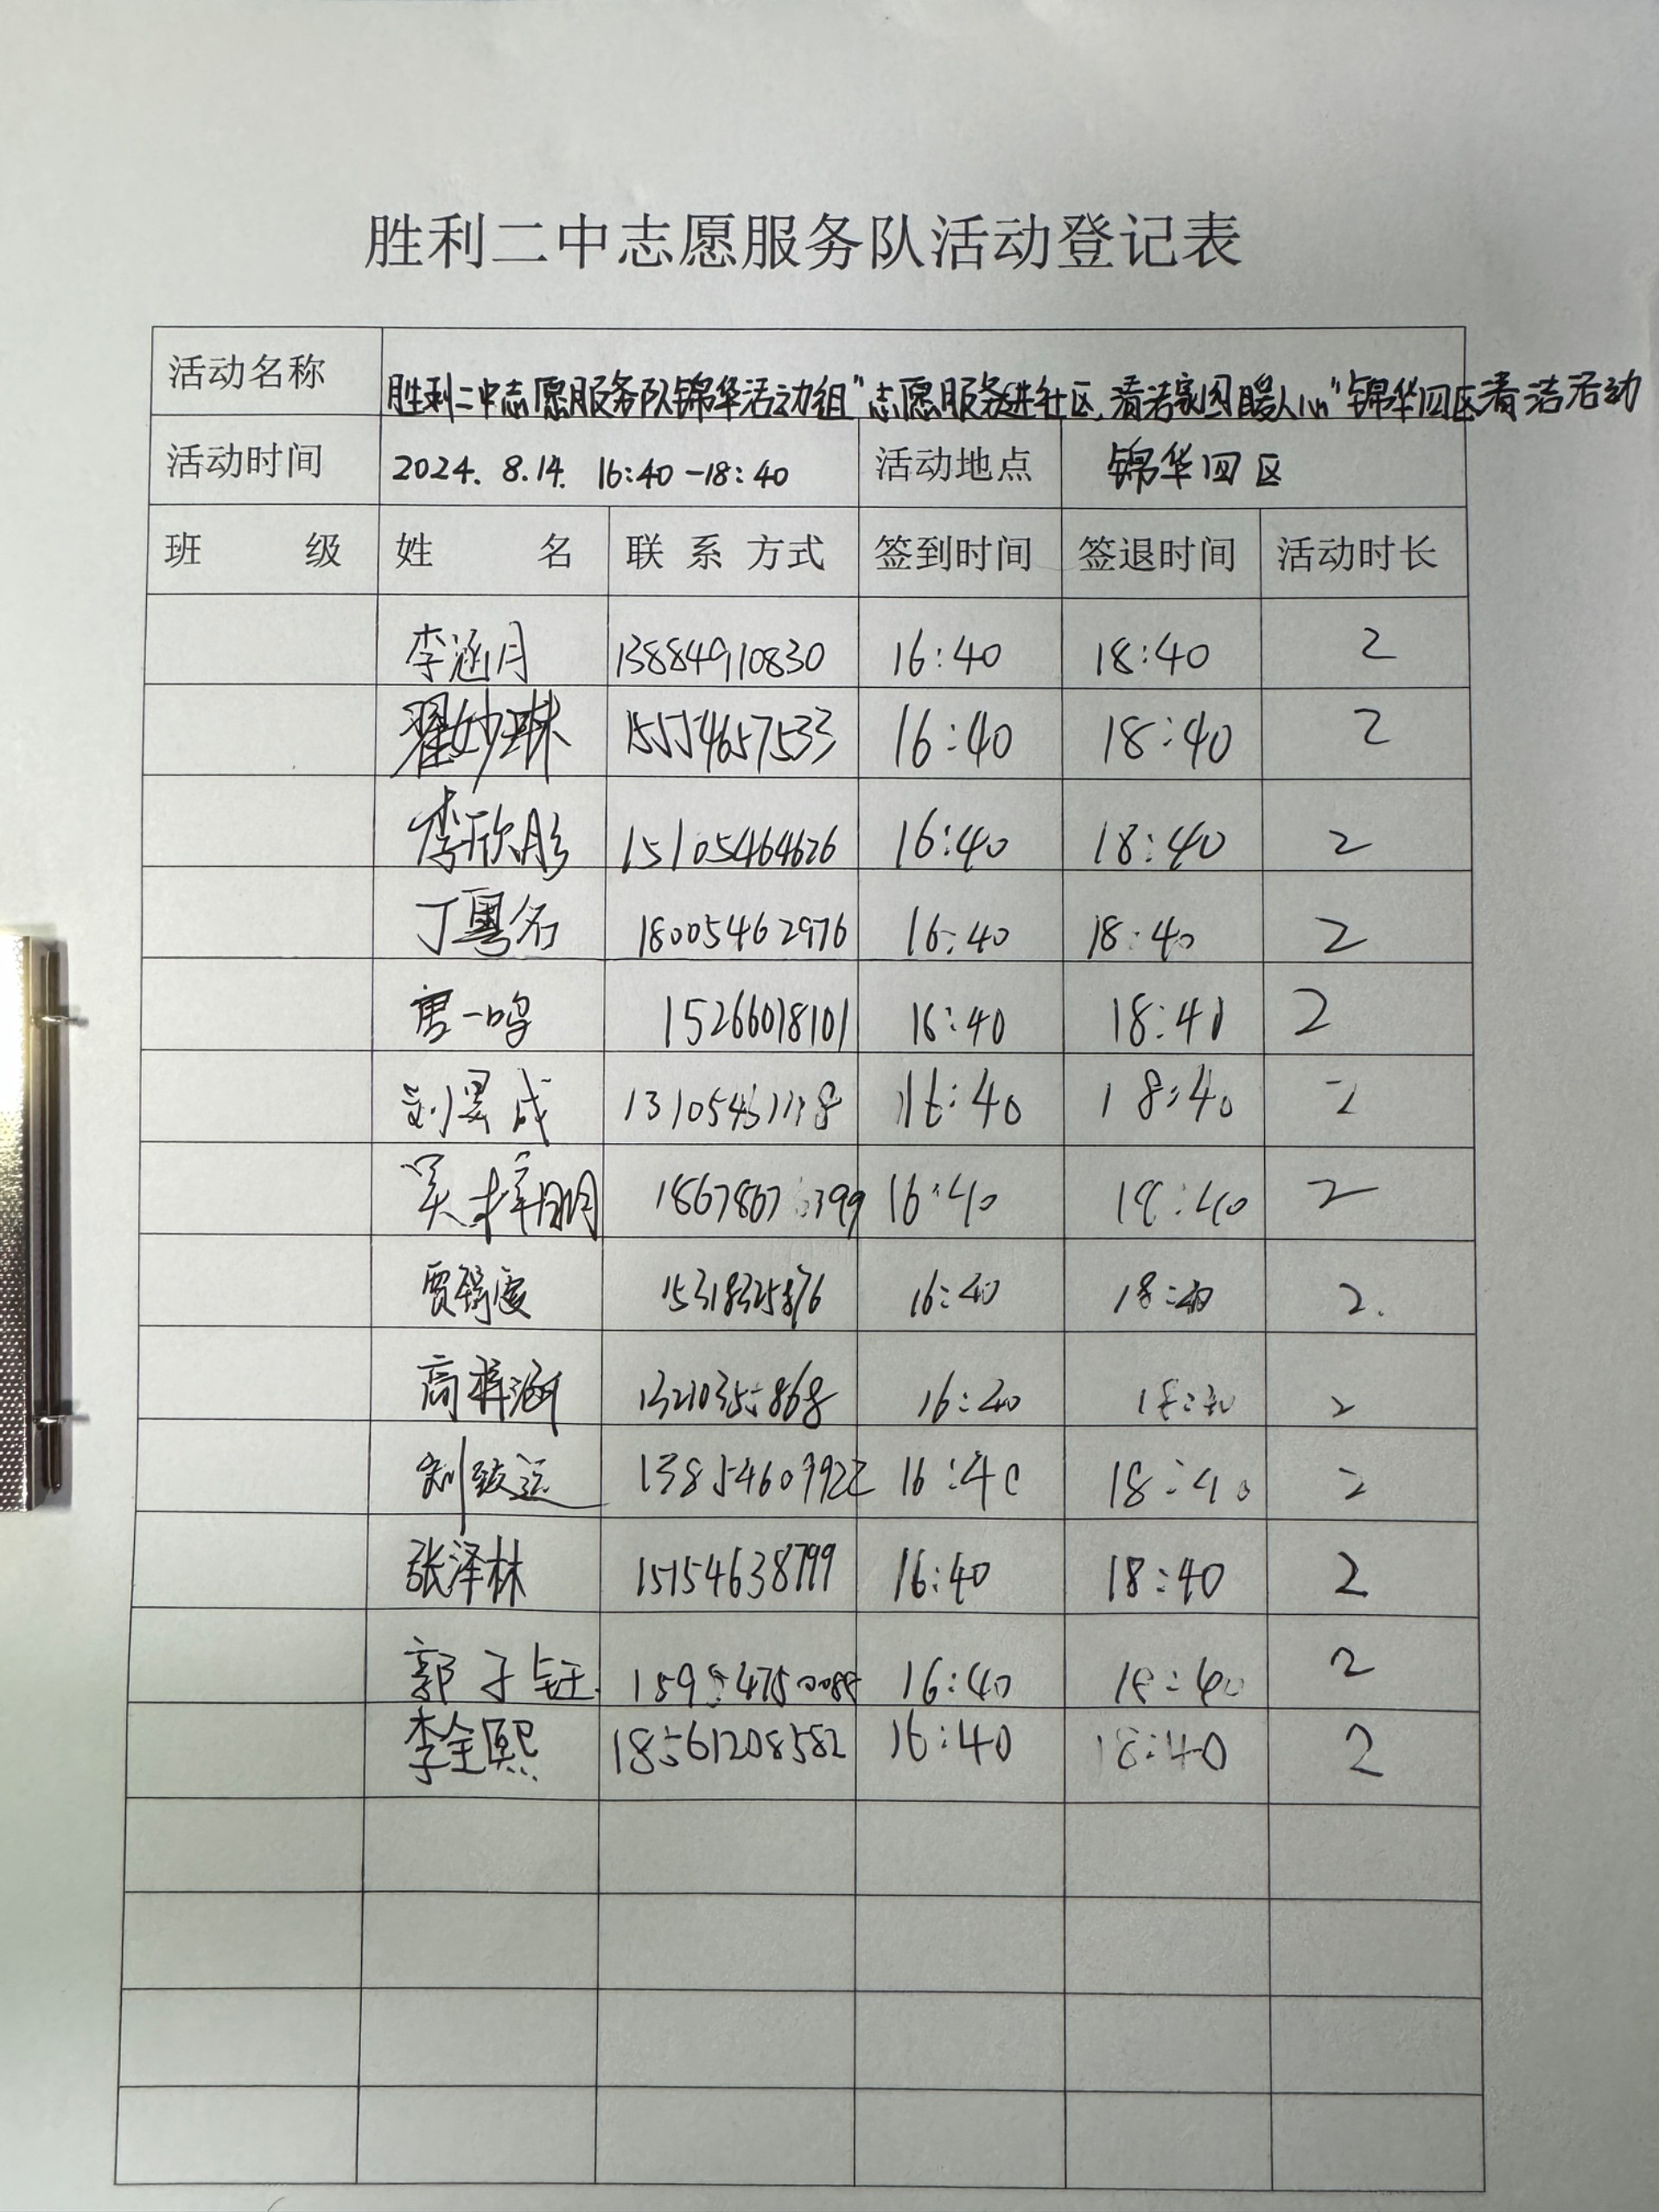 胜利二中志愿服务队活动登记表
活动名称 胜利二中志愿服务队锦华活动组"志愿服务进社区,清洁家园暖人心"锦华四区清洁活动
活动时间 2024. 8.14. 16:40-18:40 活动地点 锦华四区
班 级 姓 名 联 系 方式 签到时间 签退时间 活动时长
李涵月 13884910830 16:40 18:40 2
翟妙琳 15554657533 16:40 18:40 2
李欣彤 15105464626 16:40 18:40 2
丁粤名 18005462976 16:40 18:40 2
唐一鸣 15266018101 16:40 18:40 2
刘昱成 16:40 18:40 2
吴梓明 16:40 18:40 2
贾 16:40 18:40 2.
高梓涵 16:40 2
刘致远 16:40 18:40 2
张泽林 15154638799 16:40 18:40 2
郭子钰 16:40 18:40 2
李全熙 18561208582 16:40 18:40 2